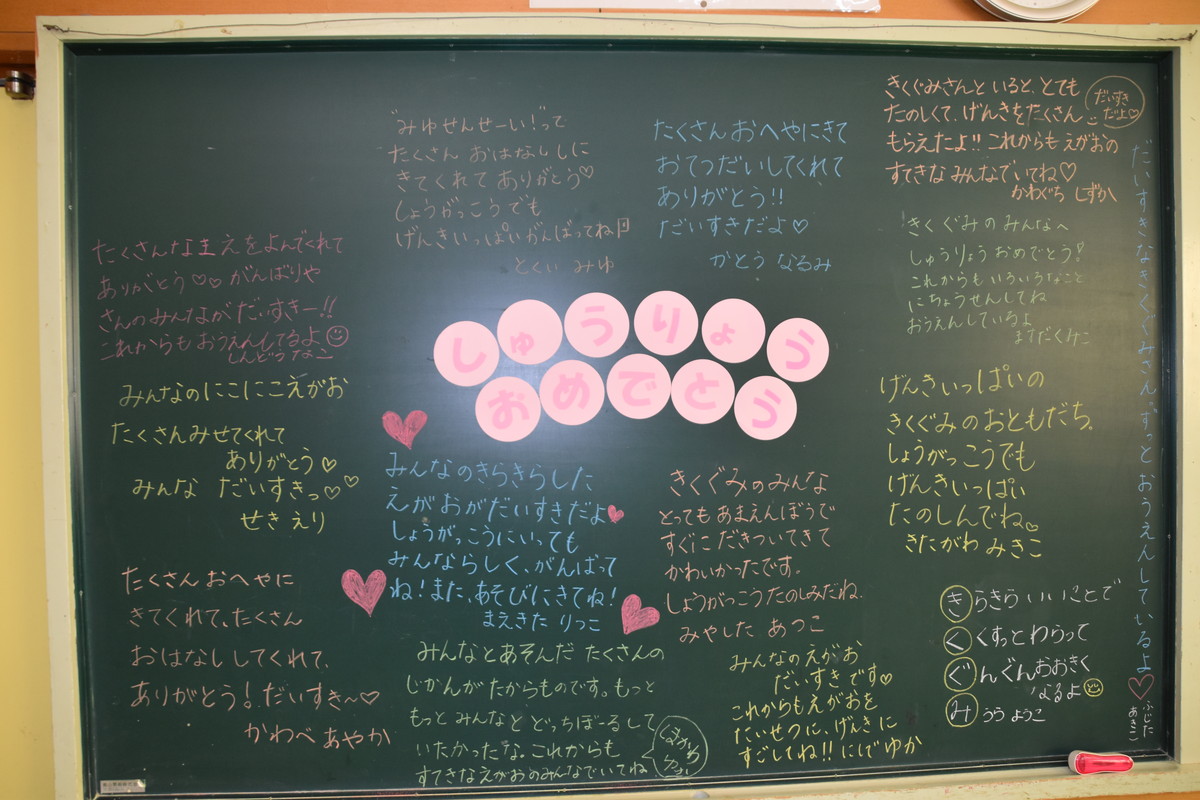 しゅうりょう
おめでとう
"みゆせんせーい!"って
たくさん おはなししに
きてくれて ありがとう♡
しょうがっこうでも
げんきいっぱいがんばってね
とくい みゆ
たくさん おへやにきて
おてつだいしてくれて
ありがとう!!
だいすきだよ♡
かとう なるみ
きくぐみさんと いると、とても
たのしくて、げんきをたくさん
もらえたよ!! これからも えがおの
すてきな みんなでいてね♡
かわぐち しずか
だいすき
だよ♡
だいすきなきくぐみさん ずっとおうえんしているよ♡
ふじた
あきこ
きくぐみのみんなへ
しゅうりょう おめでとう!
これからも いろいろなこと
にちょうせんしてね
おうえんしているよ
ますだくみこ
たくさんなまえをよんでくれて
ありがとう♡♡ がんばりや
さんのみんながだいすきー!!
これからもおうえんしてるよ
しんどう なこ
みんなのにこにこえがお
たくさんみせてくれて
ありがとう♡
みんな だいすきっ♡♡
せき えり
げんきいっぱいの
きくぐみのおともだち。
しょうがっこうでも
げんきいっぱい
たのしんでね♡
きたがわ みきこ
みんなのきらきらした
えがおがだいすきだよ
しょうがっこうにいっても
みんならしく、がんばって
ね!また、あそびにきてね!
まえきた りっこ
きくぐみのみんな
とってもあまえんぼうで
すぐに だきついてきて
かわいかったです。
しょうがっこうたのしみだね。
みやした あつこ
たくさん おへやに
きてくれて、たくさん
おはなし してくれて、
ありがとう!だいすき~♡
かわべ あやか
みんなとあそんだ たくさんの
じかんがたからものです。もっと
もっと みんなと どっちぼーるして
いたかったな。これからも
すてきなえがおのみんなでいてね
みんなのえがお
だいすきです♡
これからもえがおを
たいせつに、げんきに
すごしてね!! にしで ゆか
きらきら いいことで
くくすっとわらって
ぐんぐんおおきく
なるよ
みうら ようこ